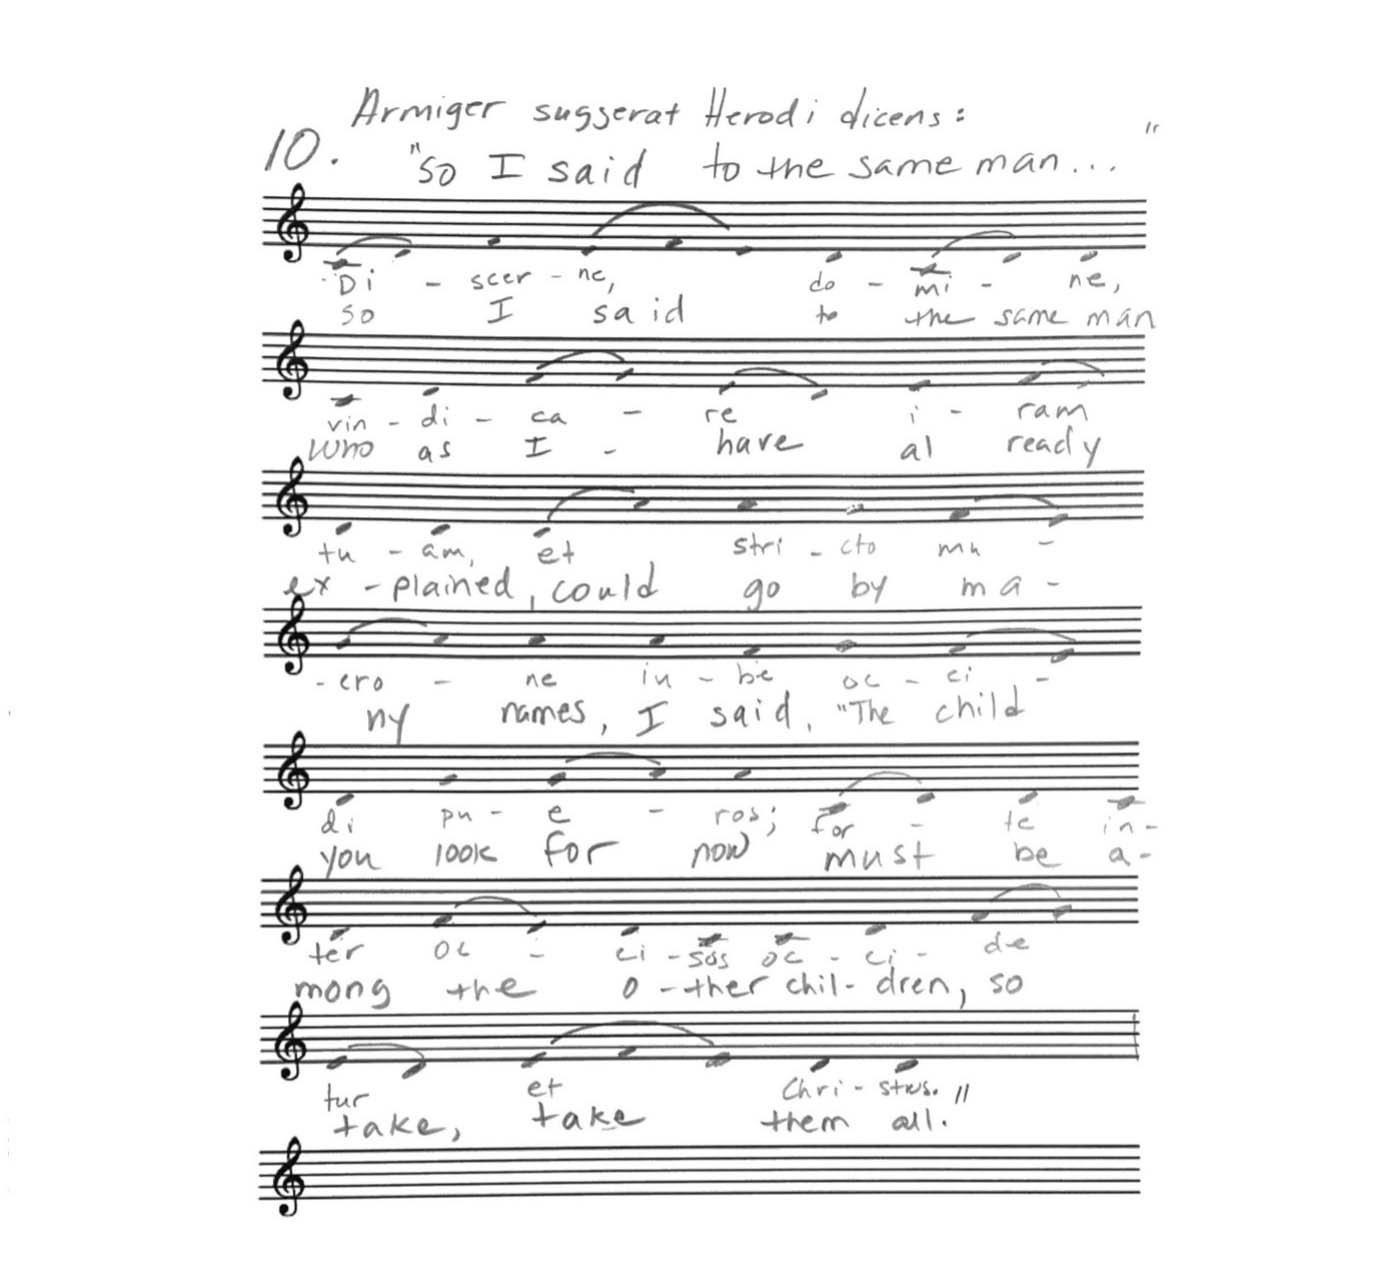 Armiger suggerat Herodi dicens:
10. "so I said to the same man..."
Di - scer - ne, do - mi - ne,
so I said to the same man
vin - di - ca - re i - ram
who as I - have al ready
tu - am, et stri - cto mu -
ex - plained, could go by ma -
- cro - ne iu - be oc - ci -
ny names, I said, "The child
di pu - e - ros; for - te in -
you look for now must be a -
ter oc - ci - sos oc - ci - de
mong the o - ther chil - dren, so
tur et Chri - stus. "
take, take them all.